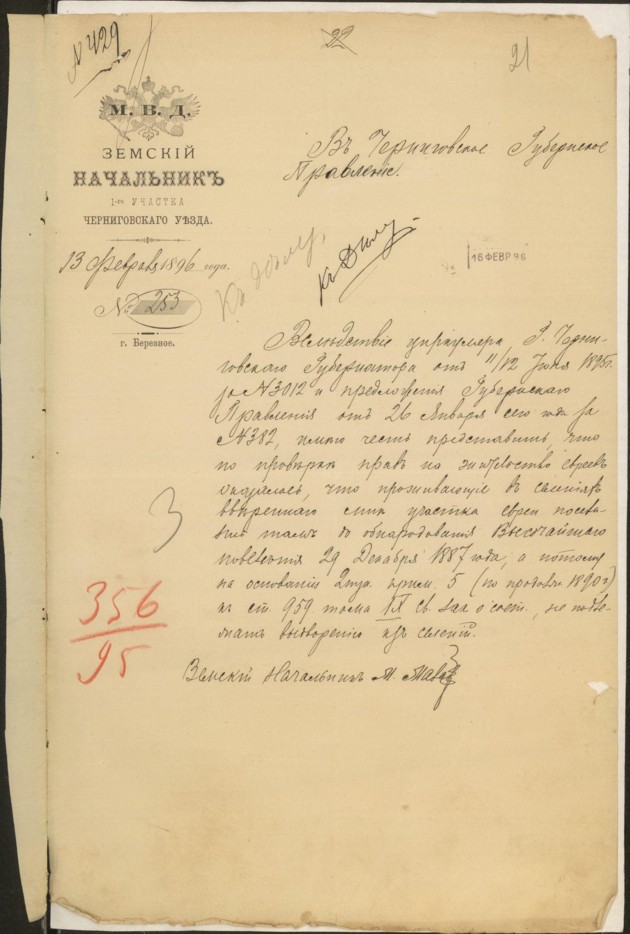 № 429
22
21
М. В. Д.
ЗЕМСКІЙ
НАЧАЛЬНИКЪ
1-го УЧАСТКА
ЧЕРНИГОВСКАГО УѢЗДА.
13 Февраля 1896 года.
№ 253
г. Березное.
Въ Черниговское Губернское
Правленіе.
Къ дѣлу,
къ дѣлу
16 ФЕВР 96
Вслѣдствіе циркуляра Г. Черни-
говскаго Губернатора отъ 11/12 Іюня 1895 г.
за № 3012 и предложенія Губернскаго
Правленія отъ 26 Января сего года за
№ 382, имѣю честь представить, что
по провѣркѣ правъ на жительство евреевъ
оказалось, что проживающіе въ селеніяхъ
ввѣреннаго мнѣ участка евреи посели-
лись тамъ до обнародованія Высочайшаго
повелѣнія 29 Декабря 1887 года, а потому
на основаніи 2 пун. прим. 5 (по продолж. 1890 г.)
къ ст. 959 тома IX Св. Зак. о сост., не подле-
жатъ выдворенію изъ селеній.
3
356
95
Земскій Начальникъ М.